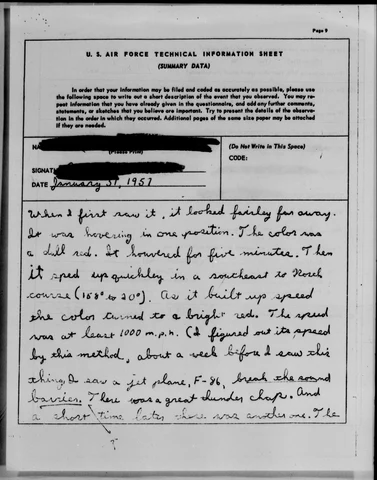 Page 9
U. S. AIR FORCE TECHNICAL INFORMATION SHEET
(SUMMARY DATA)
In order that your information may be filed and coded as accurately as possible, please use
the following space to write out a short description of the event that you observed. You may re-
peat information that you have already given in the questionnaire, and add any further comments,
statements, or sketches that you believe are important. Try to present the details of the observa-
tion in the order in which they occurred. Additional pages of the same size paper may be attached
if they are needed.
NA
(Please Print)
(Do Not Write in This Space)
CODE:
SIGNAT
DATE January 31, 1957
When I first saw it, it looked fairley far away.
It was hovering in one position. The color was
a dull red. It houvered for five minutes. Then
it sped up quickley in a southeast to North
course (158° to 20°). As it built up speed
the color turned to a bright red. The speed
was at least 1000 m.p.h. (I figured out its speed
by this method, about a week before I saw this
thing, I saw a jet plane, F-86, break the sound
barrier. There was a great thunder clap. And
a short time later there was another one. The
?